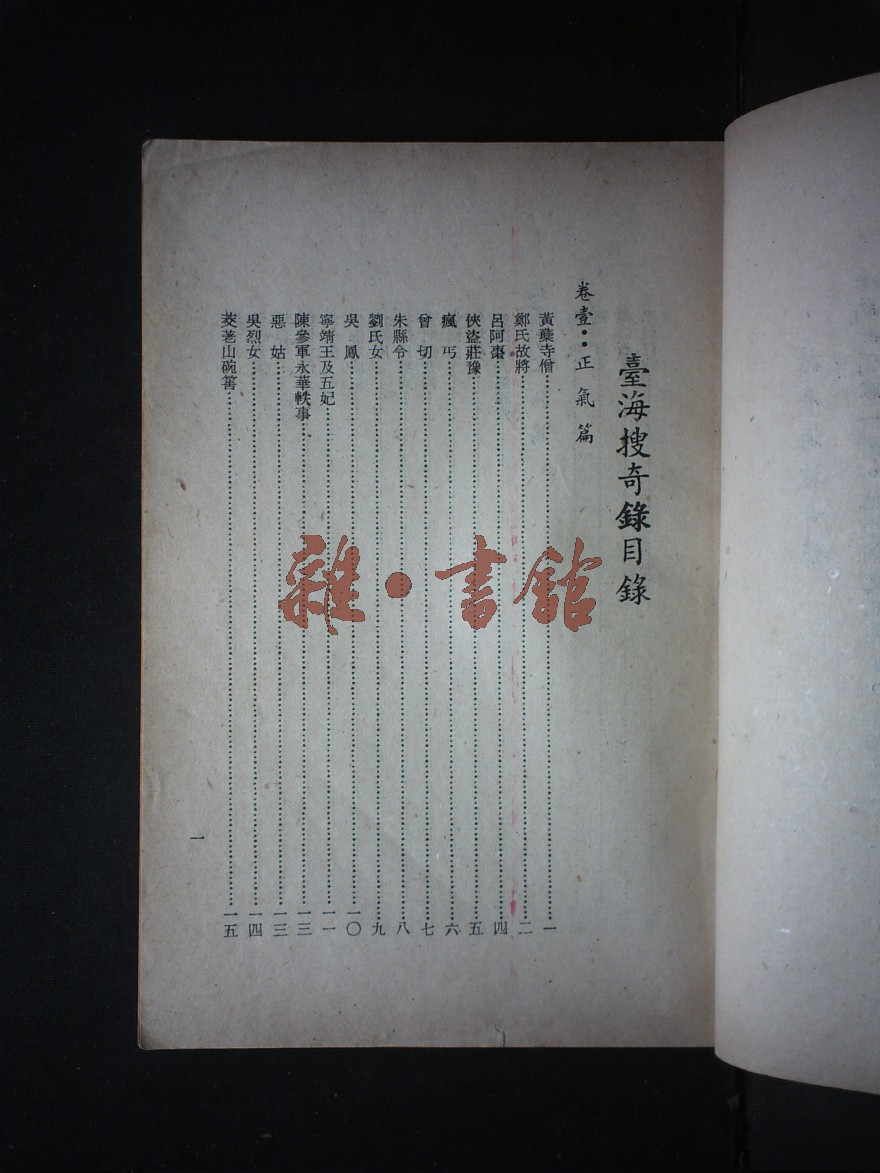 臺海搜奇錄目錄
卷壹··正氣篇
黃蘗寺僧…………一
鄭氏故將…………二
呂阿棗…………四
俠盜莊豫…………五
瘋丐…………六
曾切…………七
朱縣令…………八
劉氏女…………九
吳鳳…………一〇
寧靖王及五妃…………一一
陳參軍永華軼事…………一三
惡姑…………一三
吳烈女…………一四
茭荖山碗篙…………一五
一
雜·書館